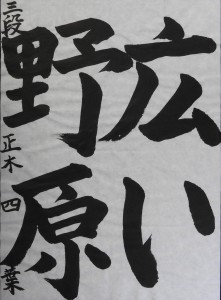 広い
野原
三段 正木四葉